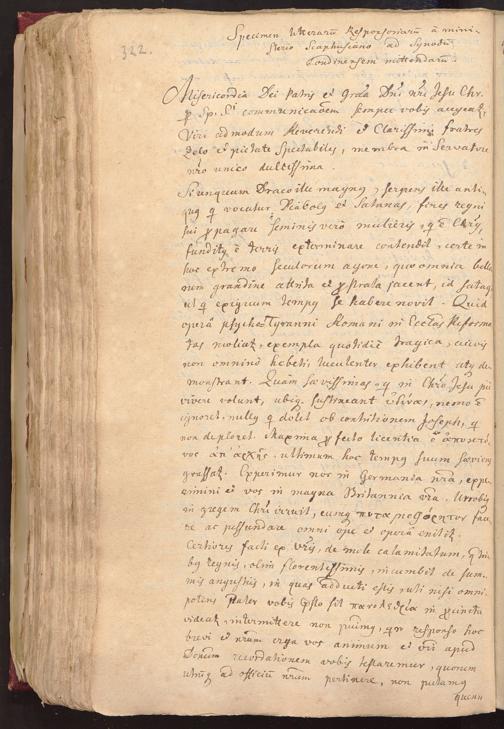 322.
Specimen litterarū Responsoriarū à mini-
sterio Scaphusiano ad Synodū
Londinensem mittendarū.
Misericordia Dei patris et gr̄a Dn̄i nr̄i Jesu Chr.
Sp. Sti communicaōem semper vobis
Viri admodum Reverendi et Clarissimi fratres
Zelo et pietate Spectabiles, membra in Servatore
nr̄o unico dulcissima.
Si unquam Draco ille magnus, serpens ille anti-
qus q vocatur Diabolus et Satanas, fines regni
sui seminis verò mulieris, q ē Chrūs,
funditus è terris exterminare contendit, certe in
hoc extremo Seculorum agone, quo omnia belli-
grandine attrita et prostrata jacent, id
ut q exiguum tempus se habere novit. Quid
operâ Tyranni Romani in Ecctas Reforma-
tas moliat, exempla quotidiè tragica, cuivis
non omninò hebeti, luculenter exhibent atq de-
monstrant. Quàm sævissimas q in Chrō Jesu pii
vivere volunt, ubiq sustineant ὠδῖνας, nemo ē
ignoret, nullus q dolet ob contritionem Joseph, q
non deploret. Maxima pfecto licentia ὁ ἀνθρωποκτό-
νος ἀπ ἀρχῆς ultimum hoc tempus suum sæviens
grassat. Experimur nos in Germania nr̄a, expe-
rimini et vos in magna Britannia vr̄a. Ut
in gregem Chri irruit, eumq ποταμοφόρητον face-
re ac pessundare omni ope et operâ enitit.
Certiores facti ex vr̄is, de mole calamitatum, q tri-
bus regnis, olim florentissimis, incumbit de sum-
mis angustiis, in quas adducti estis, uti nisi omni-
potens pater vobis pſto sit πανολεθρία in procinctu
videat, intermittere non puimus, qn responso hoc
brevi et nr̄um erga vos animum et vr̄i apud
Dominum recordationem vobis testaremur, quorum
utrumq ad officium nr̄um pertinere, non putamus
quenq